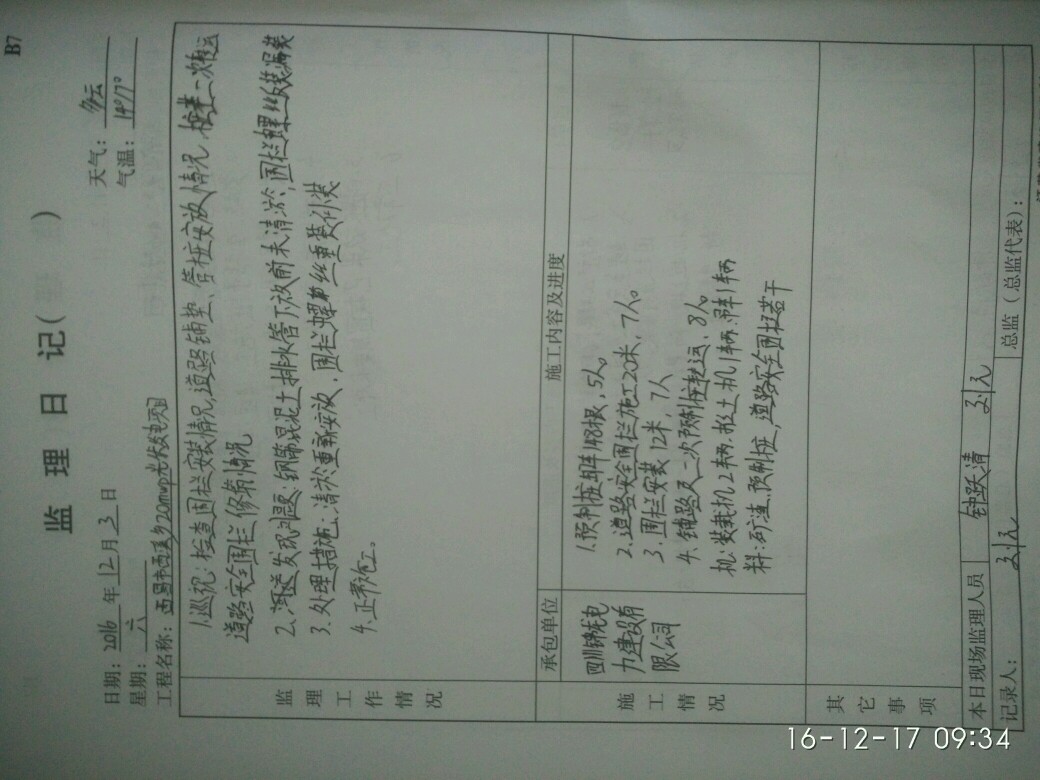 B7
监 理 日 记（ ）
日期：2016年12月3日
天气：多云
星期：六
气温：14°/7°
工程名称：西昌市西溪乡20mwp光伏发电项目
监理工作情况
1.巡视：检查围栏安装情况，道路铺垫、管桩安放情况，检查二次搬运
道路安全围栏修布情况
2.河道发现问题：钢筋混凝土排水管下放前未清淤，围栏螺丝
3.处理措施：清淤重新安放，围栏螺丝重装补装
4.正常施工。
承包单位
施工内容及进度
施工情况
四川
力建设有
限公司
1.预制桩卸车148根，5人。
2.道路安全围栏施工20米，7人。
3.围栏安装12米，7人
4.铺路及二次预制桩转运，8人。
机：装载机2辆，挖土机1辆，吊车1辆
料：矿渣，预制桩，道路安全围栏若干
其它事项
本日现场监理人员
钟跃清 刘元
记录人：刘元
总监（总监代表）：
16-12-17 09:34